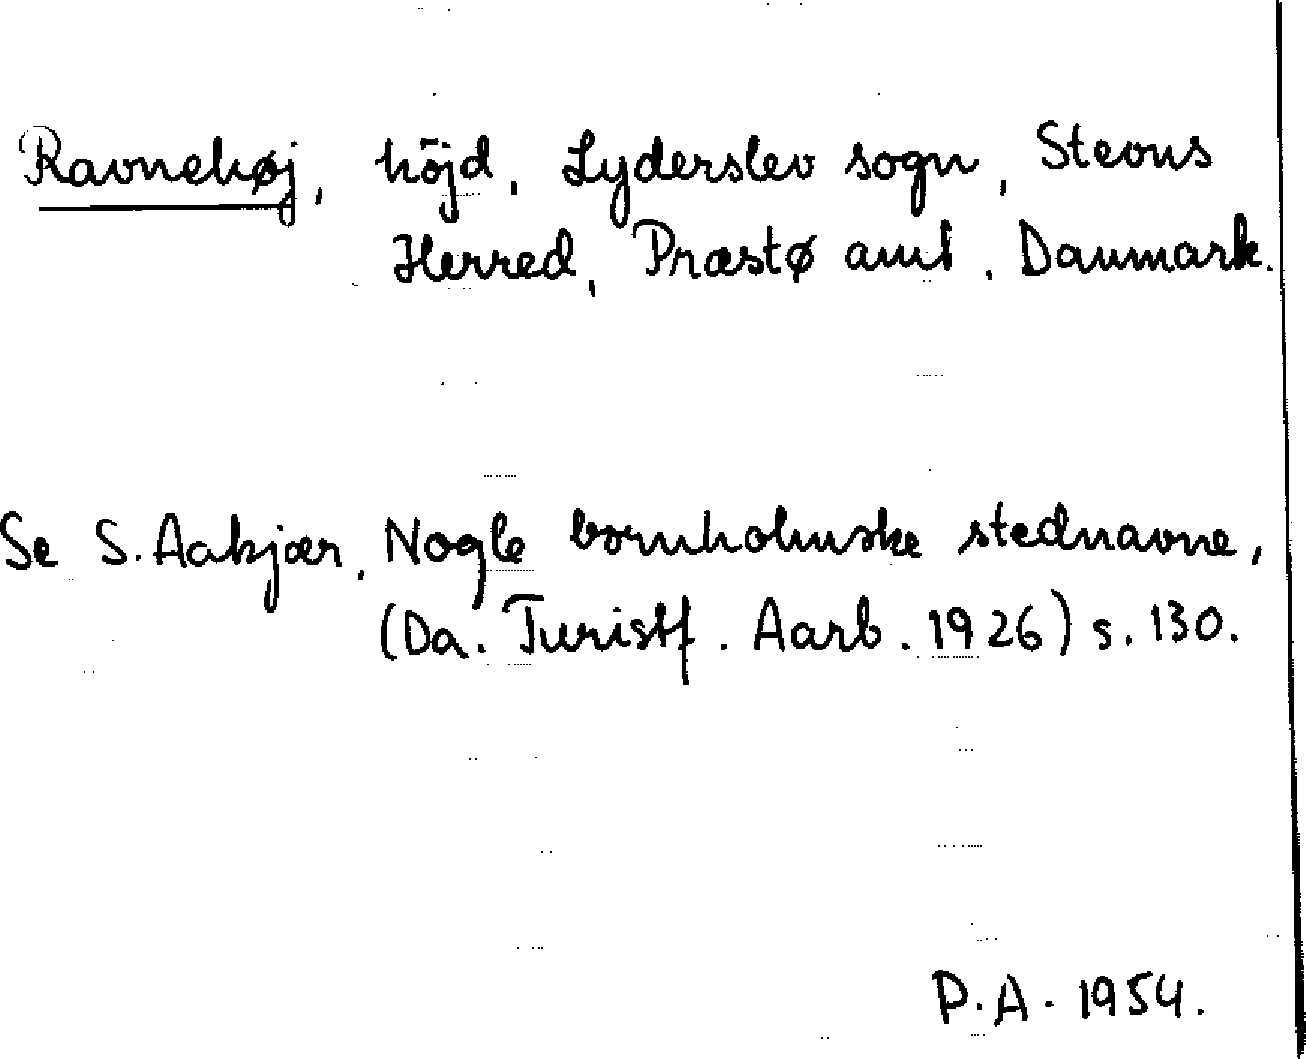 Ravnehøj, höjd, Lyderslev sogn, Stevns
Herred, Præstø amt, Danmark.
Se S. Aakjær, Nogle bornholmske stednavne,
(Da. Turistf. Aarb. 1926) s. 130.
P.A. 1954.